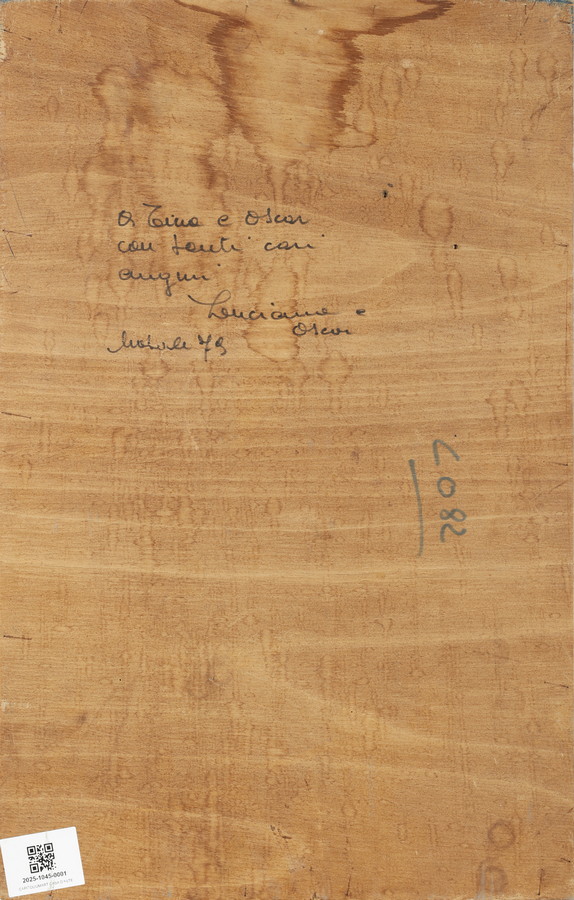 A Tina e Oscar
con tanti cari
auguri
Luciana e
Oscar
Natale 79
2807
2025-1045-0001